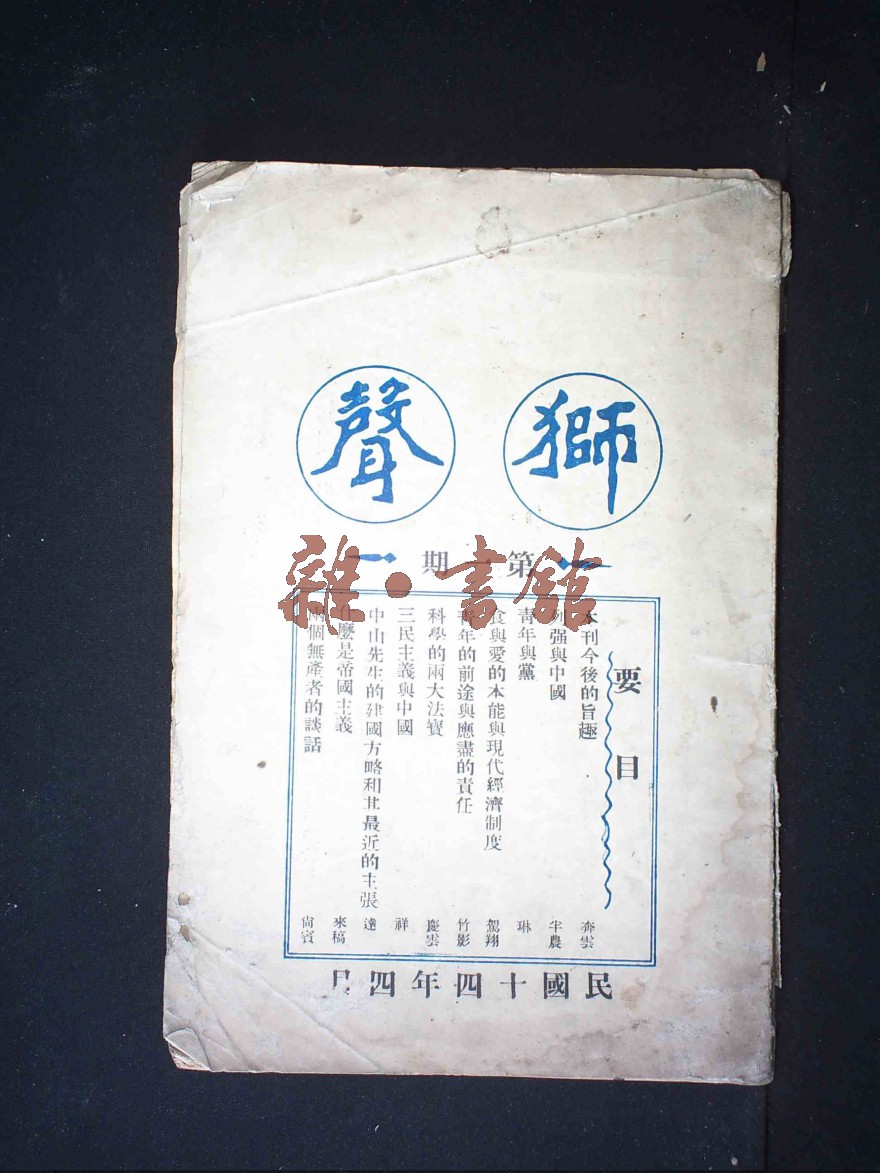 獅聲
第一期
雜·書館
要目
本刊今後的旨趣 奔雲
列强與中國 半農
靑年與黨 琳
食與愛的本能與現代經濟制度 駕翔
靑年的前途與應盡的責任 竹影
科學的兩大法寶 慶雲
三民主義與中國 祥
中山先生的建國方略和其最近的主張 達
什麼是帝國主義 來稿
兩個無產者的談話 尙賓
民國十四年四月